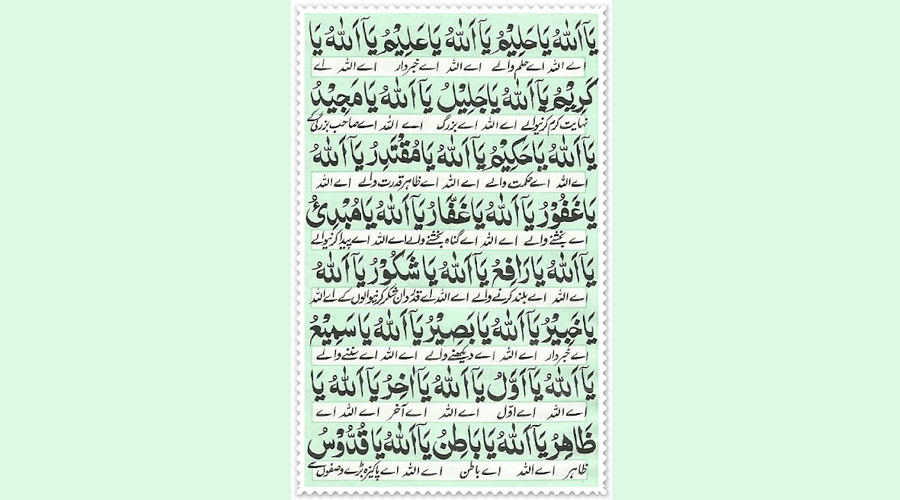 يَآ اَللّٰهُ يَا حَلِيْمُ يَآ اَللّٰهُ يَا عَلِيْمُ يَآ اَللّٰهُ يَا
اے اللہ اے حلم والے اے اللہ اے خبردار اے اللہ اے
كَرِيْمُ يَآ اَللّٰهُ يَا جَلِيْلُ يَآ اَللّٰهُ يَا مَجِيْدُ
نہایت کرم کرنیوالے اے اللہ اے بزرگ اے اللہ اے صاحب بزرگی کے
يَآ اَللّٰهُ يَا حَكِيْمُ يَآ اَللّٰهُ يَا مُقْتَدِرُ يَآ اَللّٰهُ
اے اللہ اے حکمت والے اے اللہ اے ظاہر قدرت والے اے اللہ
يَا غَفُوْرُ يَآ اَللّٰهُ يَا غَفَّارُ يَآ اَللّٰهُ يَا مُبْدِئُ
اے بخشنے والے اے اللہ اے گناہ بخشنے والے اے اللہ اے پیدا کرنیوالے
يَآ اَللّٰهُ يَا رَافِعُ يَآ اَللّٰهُ يَا شَكُوْرُ يَآ اَللّٰهُ
اے اللہ اے بلند کرنے والے اے اللہ اے قدردان شکر کرنیوالوں کے اے اللہ
يَا خَبِيْرُ يَآ اَللّٰهُ يَا بَصِيْرُ يَآ اَللّٰهُ يَا سَمِيْعُ
اے خبردار اے اللہ اے دیکھنے والے اے اللہ اے سننے والے
يَآ اَللّٰهُ يَآ اَوَّلُ يَآ اَللّٰهُ يَآ اٰخِرُ يَآ اَللّٰهُ يَا
اے اللہ اے اوّل اے اللہ اے آخر اے اللہ اے
ظَاهِرُ يَآ اَللّٰهُ يَا بَاطِنُ يَآ اَللّٰهُ يَا قُدُّوْسُ
ظاہر اے اللہ اے باطن اے اللہ اے پاکیزہ بڑے وصفوں سے